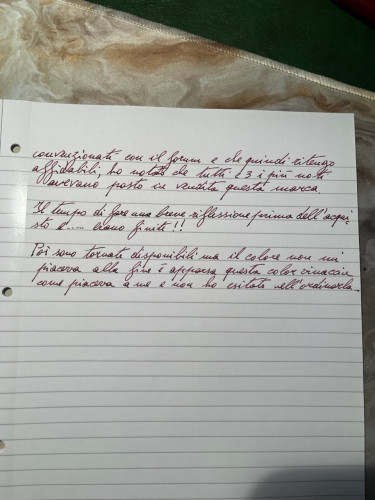 convenzionati con il forum e che quindi ritengo
affidabili, ho notato che tutti e 3 i più noti
avevano posto in vendita questa marca
Il tempo di fare una breve riflessione prima dell'acqui-
sto e..... erano finite!!
Poi sono tornate disponibili ma il colore non mi
piaceva alla fine è apparsa questa color vinaccia
come piaceva a me e non ho esitato all'ordinarla.